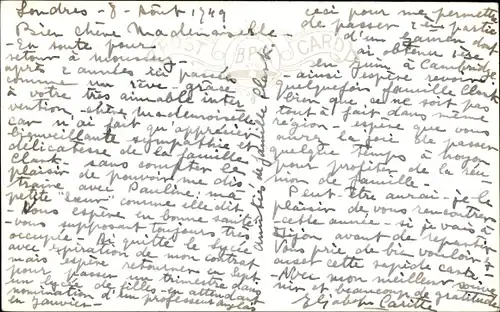 Londres - 8 - Août 1949
Bien chère Mademoiselle -
- En route pour
retour à
après 2 années ici passées
comme un rêve - grâce
à votre très aimable inter
vention - chère mademoiselle
car n'ai fait qu'apprécier
bienveillante sympathie et
délicatesse de la famille
Clark - sans compter le
plaisir de pouvoir me dis
traire avec Pauline, ma
petite "sœur" comme elle dit
- Vous espère en bonne santé
- vous supposant toujours très
occupée - Ai quitté le lycée
avec expiration de mon contrat
mais espère retourner en Sept.
pour passer un trimestre dans
un lycée de filles en attendant
nomination d'un professeur anglais
en Janvier -
POST BR CARD
amitiés de famille Clark -
ceci pour me permettre
de passer 2ème partie
d'un examen dont
ai obtenu 1ère
en Juin à Cambridge
- ainsi espère revoir
quelquefois famille Clark
bien que ce ne soit pas
tout à fait dans même
région - espère que vous
aurez le loisir de passer
quelque temps à
pour profiter de la réu
nion de famille -
Peut être aurai-je le
plaisir de vous rencontrer
cette année - si je vais à
Dijon avant de repartir -
Vous prie de bien vouloir
cette rapide carte -
Avec mon meilleur souve
nir et beaucoup de gratitude